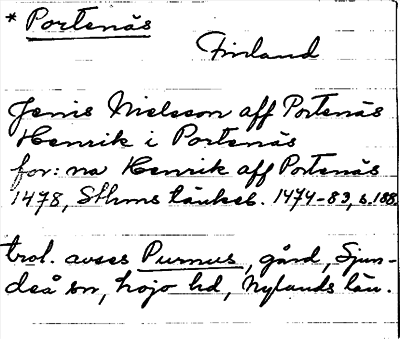 * Portenäs
Finland
Jenis Nielsson aff Portenäs
Henrik i Portenäs
for: na Henrik aff Portenäs
1478, Sthms tänkeb. 1474-83, s. 188.
trol. avses Purnus, gård, Sjun-
deå sn, Lojo hd, Nylands län.